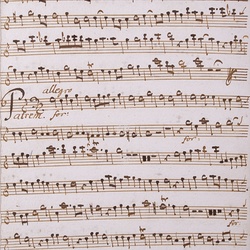 allegro
Patrem. for:
for:
for: